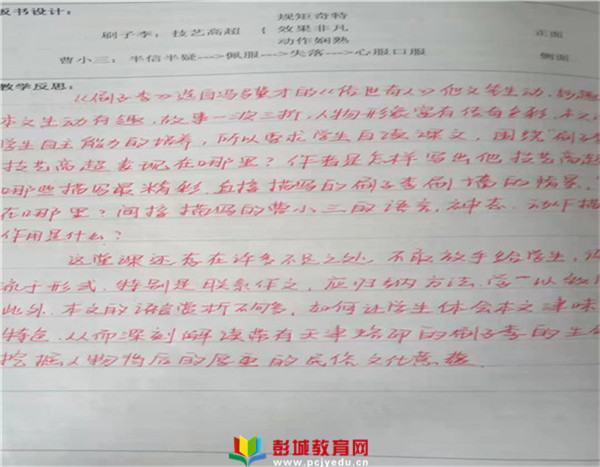 板书设计：
规矩奇特
刷子李：技艺高超 { 效果非凡 正面
动作娴熟
曹小三：半信半疑--->佩服--->失落--->心服口服 侧面
教学反思：
《刷子李》选自冯骥才的《俗世奇人》他文笔生动、
本文生动有趣，故事一波三折，人物形象富有传奇色彩，本文
学生自主能力的培养，所以要求学生自读课文，围绕“刷子
技艺高超表现在哪里？作者是怎样写出他技艺高超
哪些描写最精彩，直接描写的刷子李刷墙的情景，
在哪里？间接描写的曹小三的语言、神态、动作描
作用是什么？
这堂课还存在许多不足之处，不敢放手给学生，
流于形式，特别是联系作文，应归纳方法，
此外，本文的语言赏析不够多，如何让学生体会本文津味
特色，从而深刻解读带有天津烙印的刷子李的
挖掘人物背后的厚重的民俗文化意蕴。
彭城教育网
www.pcjyedu.cn